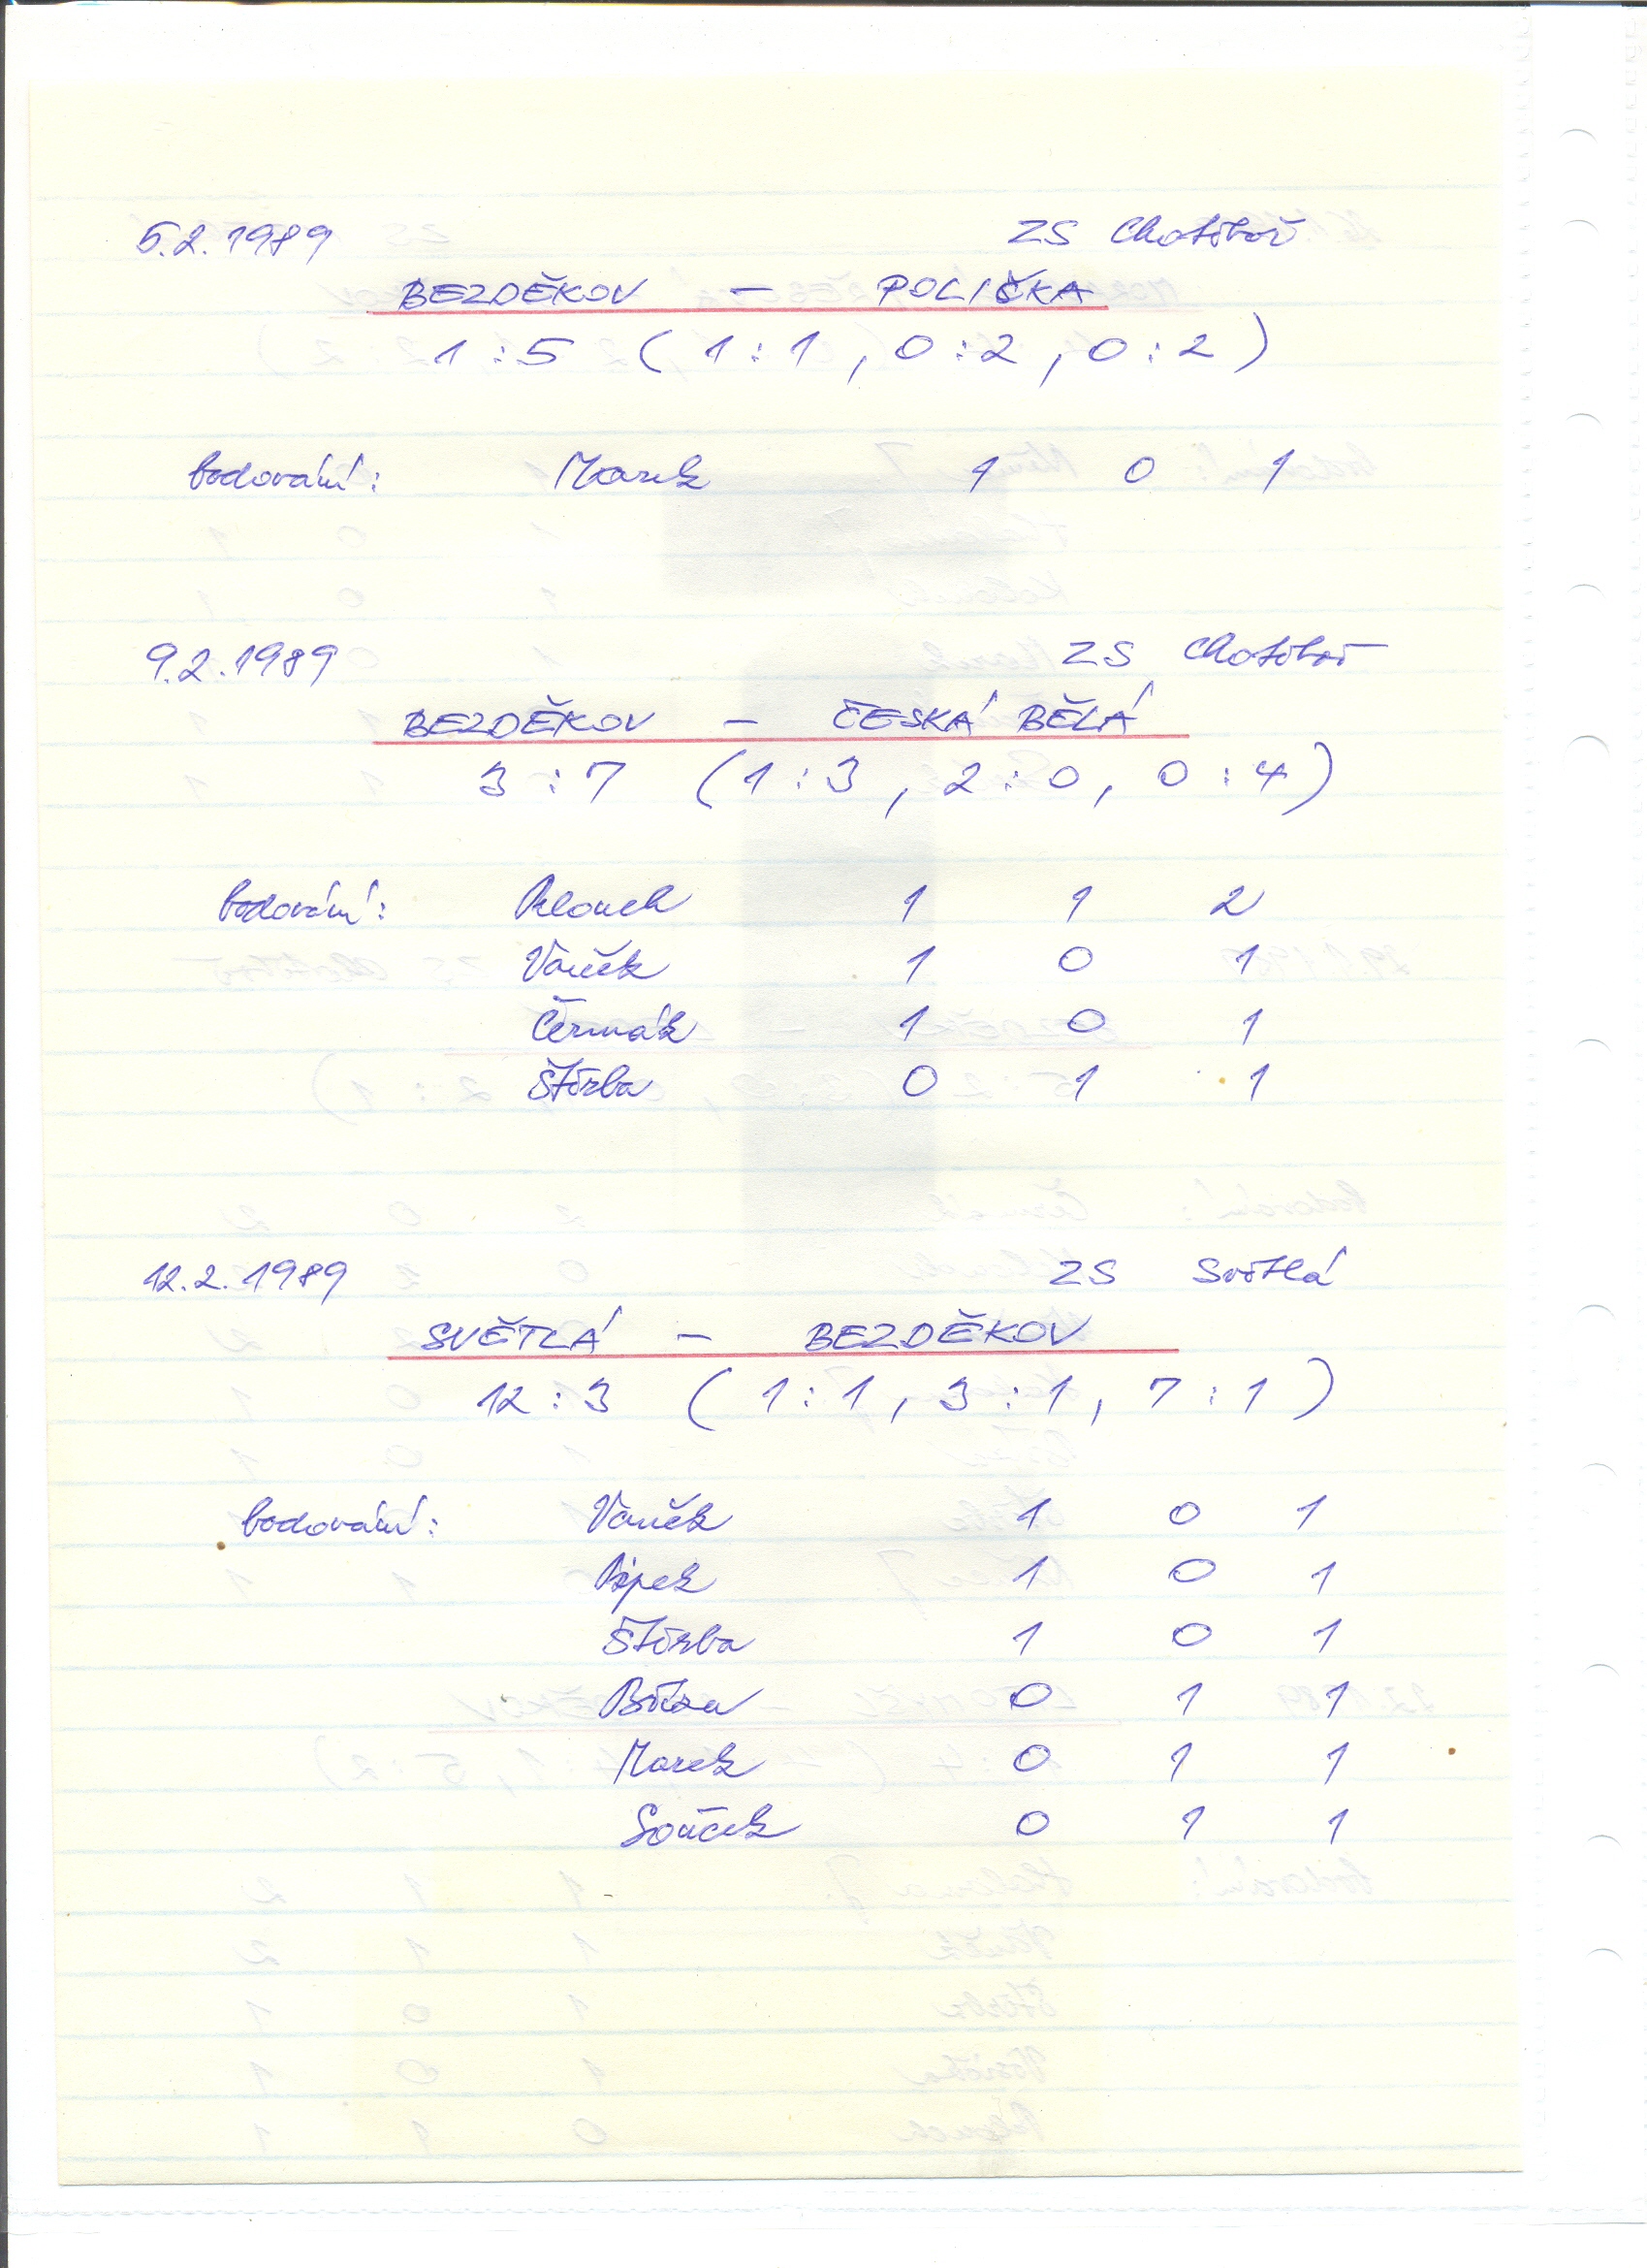 5.2.1989 ZS Chotěboř
BEZDĚKOV - POLIČKA
1:5 (1:1, 0:2, 0:2)
bodování: Marek 1 0 1
9.2.1989 ZS Chotěboř
BEZDĚKOV - ČESKÁ BĚLÁ
3:7 (1:3, 2:0, 0:4)
bodování: 1 1 2
Vaněk 1 0 1
Čermák 1 0 1
Štěrba 0 1 1
12.2.1989 ZS Světlá
SVĚTLÁ - BEZDĚKOV
12:3 (1:1, 3:1, 7:1)
bodování: Vaněk 1 0 1
1 0 1
Štěrba 1 0 1
0 1 1
Marek 0 1 1
Souček 0 1 1